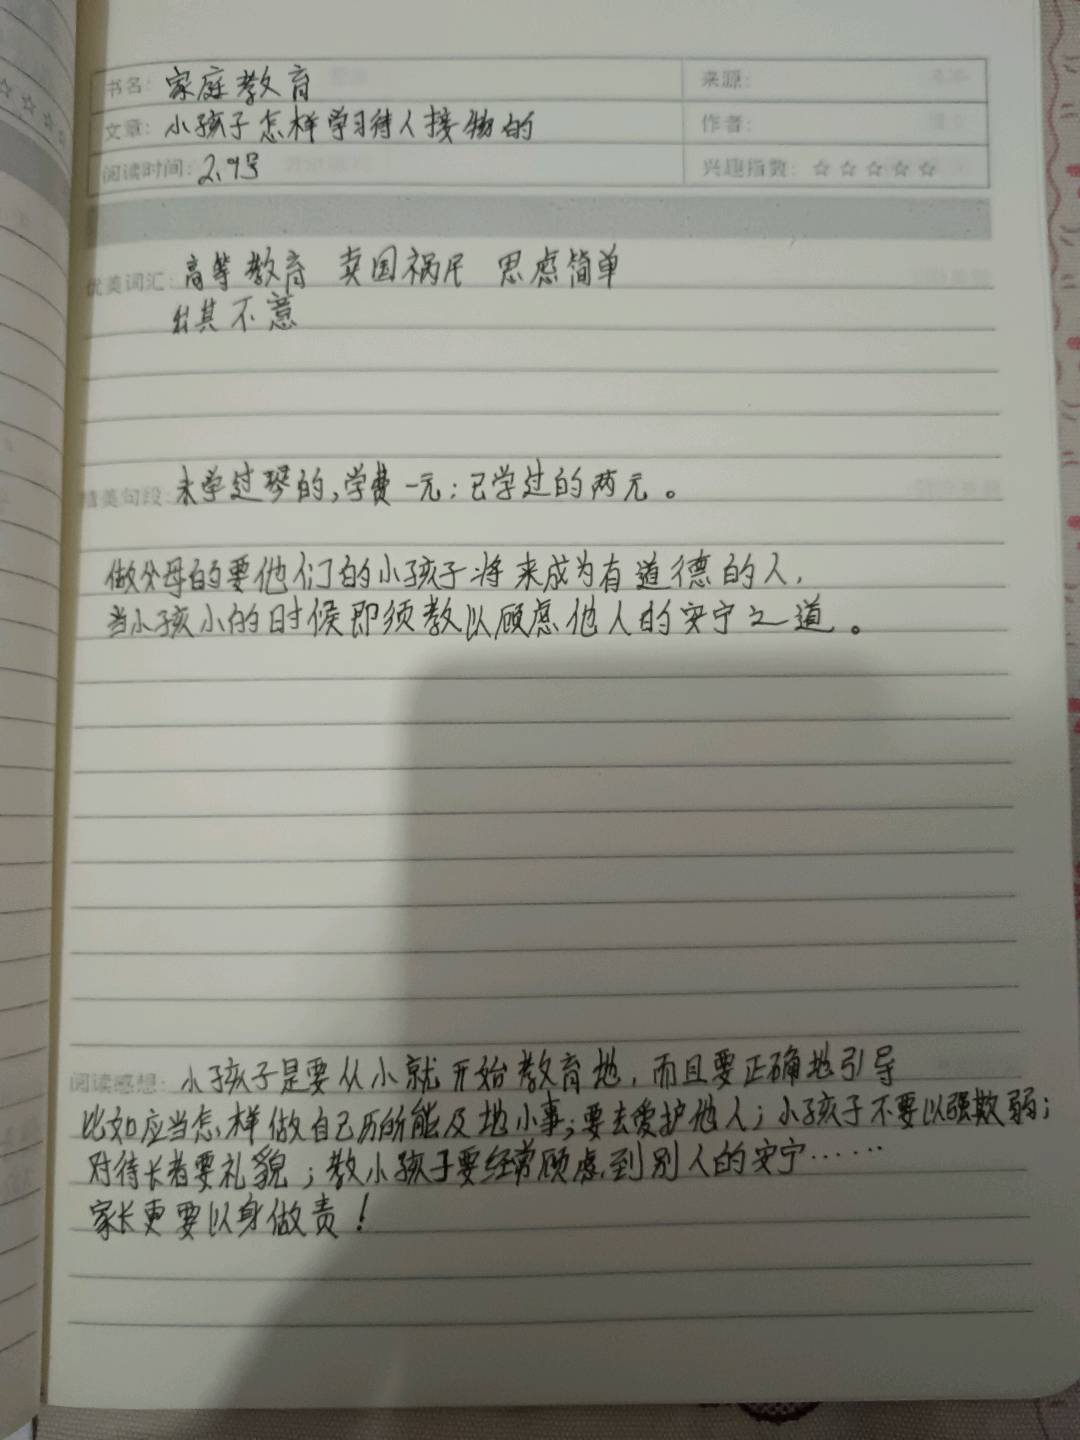 书名: 家庭教育
来源:
文章: 小孩子怎样学习待人接物的
作者:
阅读时间: 2.9号
兴趣指数: ☆☆☆☆☆
优美词汇: 高等教育 卖国祸民 思虑简单
出其不意
精美句段: 未学过琴的,学费一元;已学过的两元。
做父母的要他们的小孩子将来成为有道德的人,
当小孩小的时候即须教以顾虑他人的安宁之道。
阅读感想: 小孩子是要从小就开始教育地,而且要正确地引导
比如应当怎样做自己历所能及地小事;要去爱护他人;小孩子不要以强欺弱;
对待长者要礼貌;教小孩子要经常顾虑到别人的安宁……
家长更要以身做责!